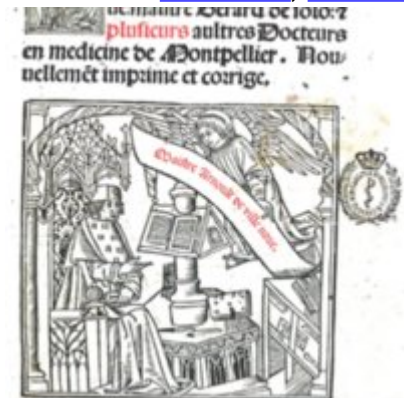 de maistre Berard de solo: ⁊
plusieurs aultres Docteurs
en medicine de Montpellier. Nou⸗
uellemẽt imprime et corrige.
Maistre Arnoult de ville noue.